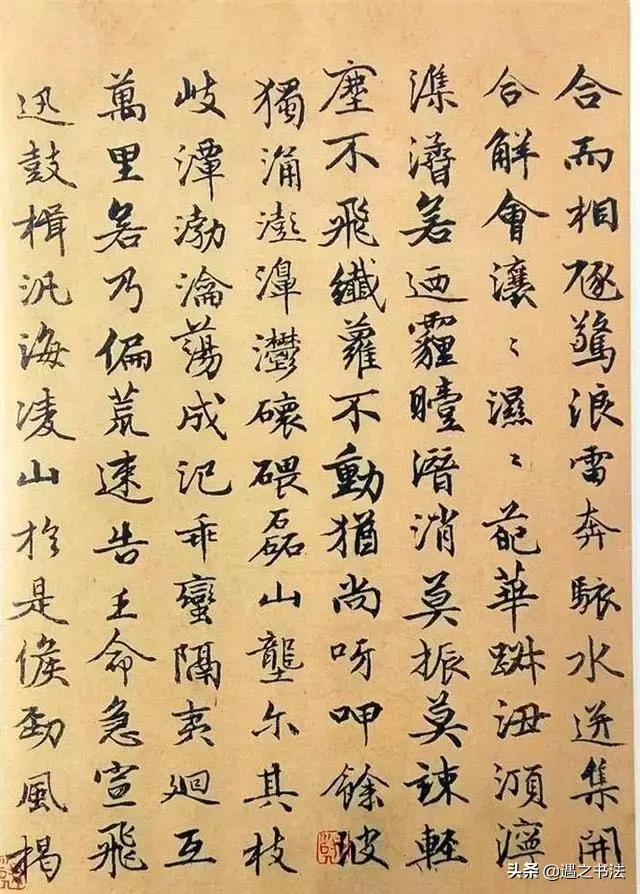 合而相豗驚浪雷奔駭水迸集開
合解會瀼〻濕〻葩華踧沑澒濘
潗㵫若迺霾曀潛消莫振莫竦輕
塵不飛纖蘿不動猶尚呀呷餘波
獨涌澎濞灪䃶碨磊山壟尔其枝
岐潭渤淪蕩成汜乖蠻隔夷廻互
萬里若乃偏荒速告王命急宣飛
迅鼓楫汎海凌山於是候勁風揭
头条 @遇之书法